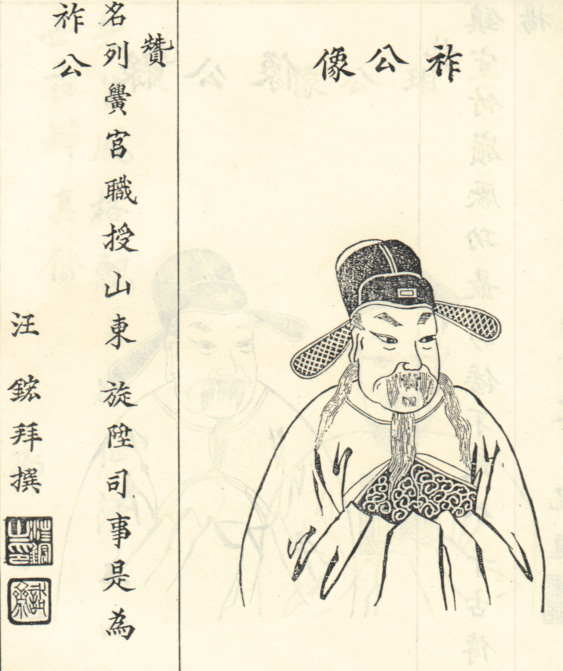 祚公像
贊
名列黌宮職授山東旋陞司事是為
祚公
汪鋐拜撰